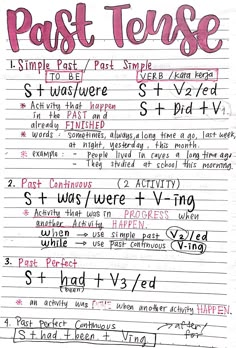 Past Tense
1. Simple Past / Past Simple
TO BE VERB / kata kerja
S + was/were S + V2/ed
S + Did + V1
* Activity that happen
in the PAST and
already FINISHED
* words : sometimes, always, a long time ago, last week,
at night, yesterday, this month.
* example : - People lived in caves a long time ago
- They studied at school this morning.
2. Past Continuous (2 ACTIVITY)
S + was/were + V-ing
* Activity that was in PROGRESS when
another Activity HAPPEN.
when → use simple past V2/ed
while → use past continuous V-ing
3. Past Perfect
S + had + V3/ed
(been)
* an activity was when another activity HAPPEN.
4. Past Perfect Continuous after/
for
S + had + been + Ving